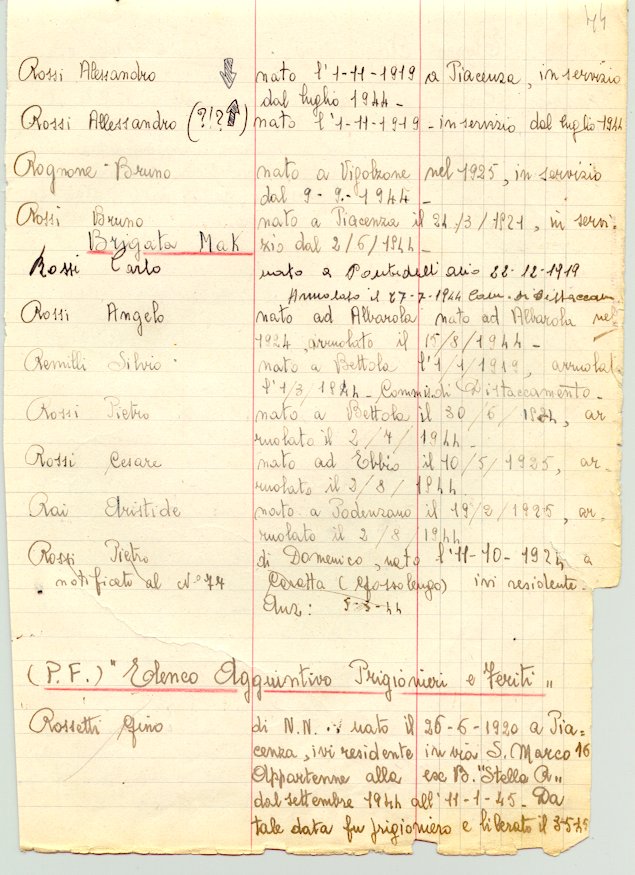 44
Rossi Alessandro nato l'1-11-1919 a Piacenza, in servizio
dal luglio 1944 -
Rossi Allessandro (?!?) nato l'1-11-1919 - in servizio dal luglio 1944
Rognone Bruno nato a Vigolzone nel 1925, in servizio
dal 9-9-1944 -
Rossi Bruno nato a Piacenza il 24/3/1921, in servi-
Brigata Mak zio dal 2/6/1944 -
Rossi Carlo nato a Pontedell'Olio 22-12-1919
Arruolato il 27-7-1944 Com. di Distaccam
Rossi Angelo nato ad Albarola nato ad Albarola nel
1924, arruolato il 15/8/1944 -
Remilli Silvio nato a Bettola l'1/1/1919, arruolato
l'1/3/1944 - Comm. di Distaccamento -
Rossi Pietro nato a Bettola il 30/6/1924, ar
ruolato il 2/7/1944 -
Rossi Cesare nato ad Ebbio il 10/5/1925, ar-
ruolato il 2/8/1944
Rai Aristide nato a Podenzano il 19/2/1925, ar-
ruolato il 2/8/1944
Rossi Pietro di Domenico, nato l'11-10-1924 a
notificato al N° 74 Caratta (Gossolengo) ivi residente -
Anz: 5-5-44
(P.F.) "Elenco Aggiuntivo Prigionieri e Feriti"
Rossetti Gino di N.N. nato il 26-6-1920 a Pia=
cenza, ivi residente in via S. Marco 16
Appartenne alla esc B. "Stella R"
dal settembre 1944 all'11-1-45. Da
tale data fu prigioniero e liberato il 3-5-45